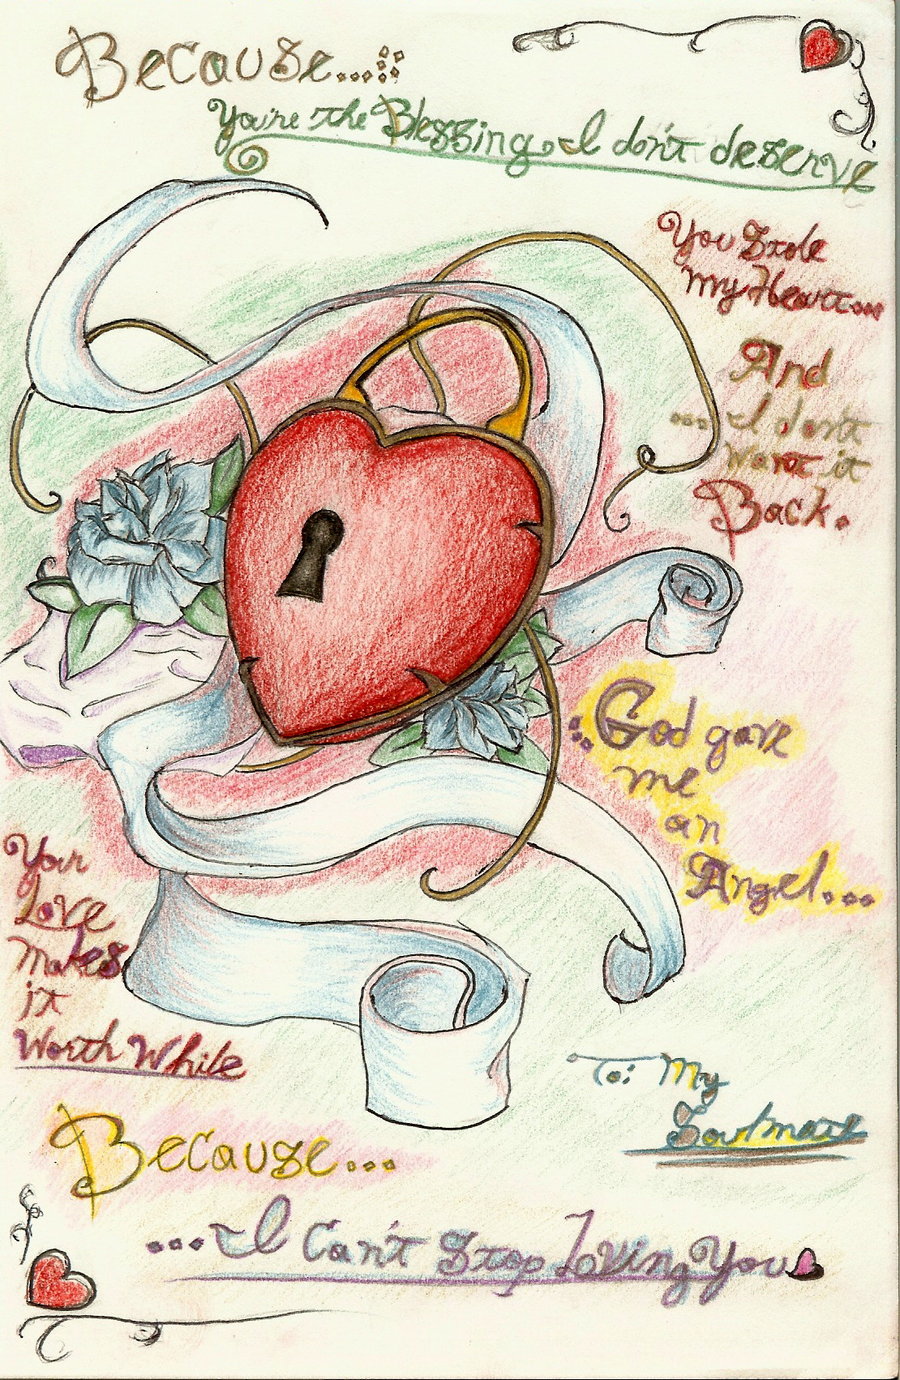 Because...
You're the Blessing I don't deserve
You Stole
My Heart...
And
...I don't
Want it
Back.
God gave
me
an
Angel...
Your
Love
Makes
it
Worth While
To: My
Soulmate
Because...
...I Can't Stop Loving You